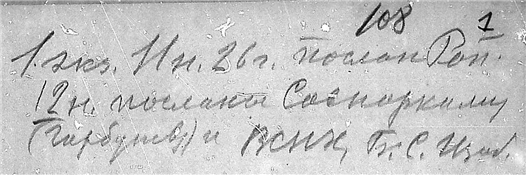 108 1
1 экз. 11 н. 26 г. послан
12 н. послана Совнаркому
(Горбунову) и ВСНХ, Б. С.